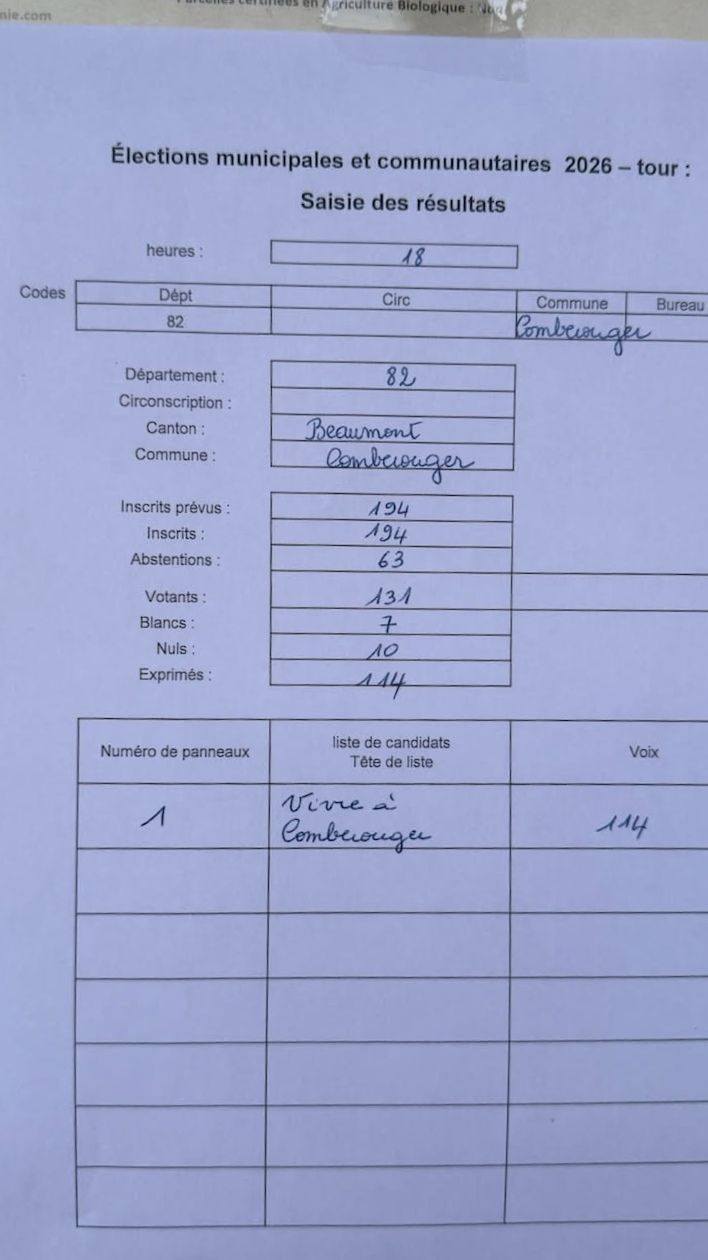 nie.com
Parcelles certifiées en Agriculture Biologique : Non
Élections municipales et communautaires 2026 – tour :
Saisie des résultats
heures : 18
Codes Dépt Circ Commune Bureau
82 Comberouger
Département : 82
Circonscription :
Canton : Beaumont
Commune : Comberouger
Inscrits prévus : 194
Inscrits : 194
Abstentions : 63
Votants : 131
Blancs : 7
Nuls : 10
Exprimés : 114
Numéro de panneaux liste de candidats Voix
Tête de liste
1 Vivre à 114
Comberouger